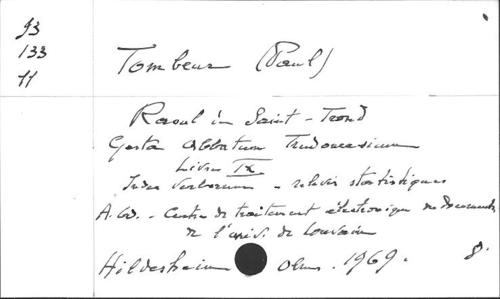 93
133
11
Tombeur (Paul)
Raoul de Saint-Trond
Gesta Abbatum Trudonensium
Livre IX
Index Verborum - relevés statistiques
Centre de traitement électronique de documents
de l'univ. de Louvain
Hildesheim Olms. 1969. 8°